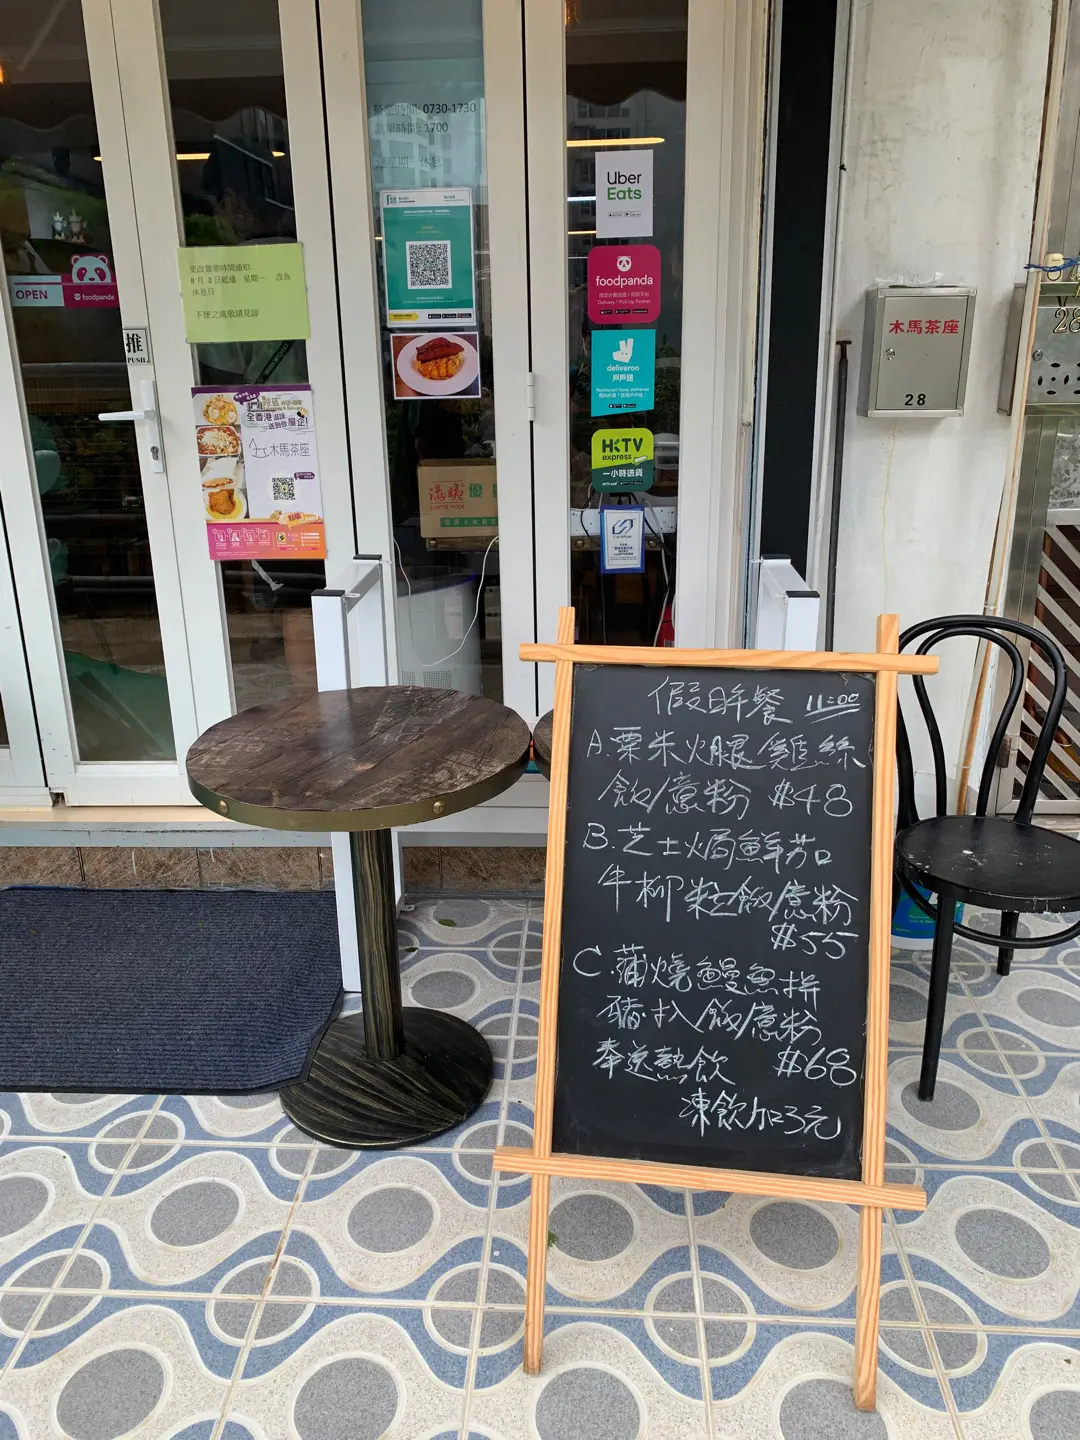 營業時間: 0730-1730
截單時間: 1700
逢星期一休息
Uber
Eats
foodpanda
Delivery / Pick-Up Partner
deliveroo
戶戶送
HKTV
express
一小時送貨
OPEN
foodpanda
更改營業時間通知:
8月2日起逢 星期一 改為
休息日
不便之處敬請見諒
推
PUSH
全香港滋味
送到你屋企!
木馬茶座
木馬茶座
28
28
假日午餐 11:00
A.粟米火腿雞絲
飯/意粉 $48
B.芝士焗鮮茄
牛柳粒飯/意粉
$55
C.蒲燒鰻魚拼
豬扒飯/意粉
奉送熱飲 $68
凍飲加3元